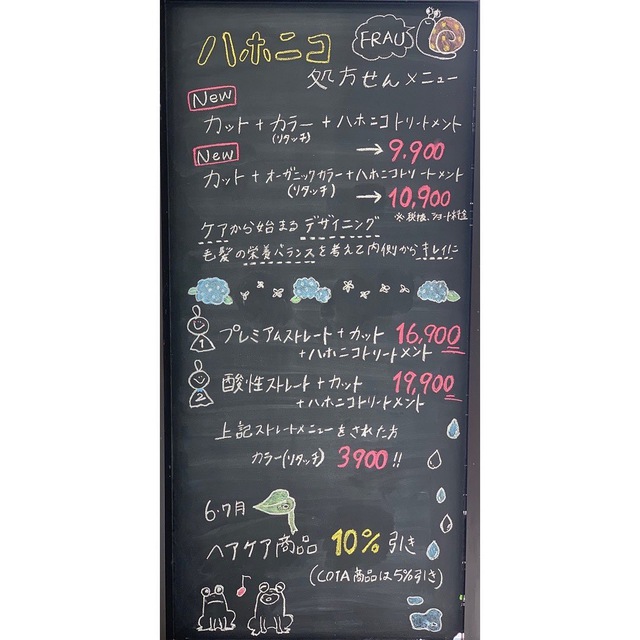 ハホニコ
FRAUS
処方せんメニュー
New
カット+カラー+ハホニコトリートメント
(リタッチ)
→9.900
New
カット+オーガニックカラー+ハホニコトリートメント
(リタッチ)
→10,900
※税抜、ショート料金
ケアから始まるデザイニング
毛髪の栄養バランスを考えて内側からキレイに
1 プレミアムストレート+カット 16,900
+ハホニコトリートメント
2 酸性ストレート+カット 19,900
+ハホニコトリートメント
上記ストレートメニューをされた方
カラー(リタッチ) 3900!!
6・7月
ヘアケア商品 10%引き
(COTA商品は5%引き)